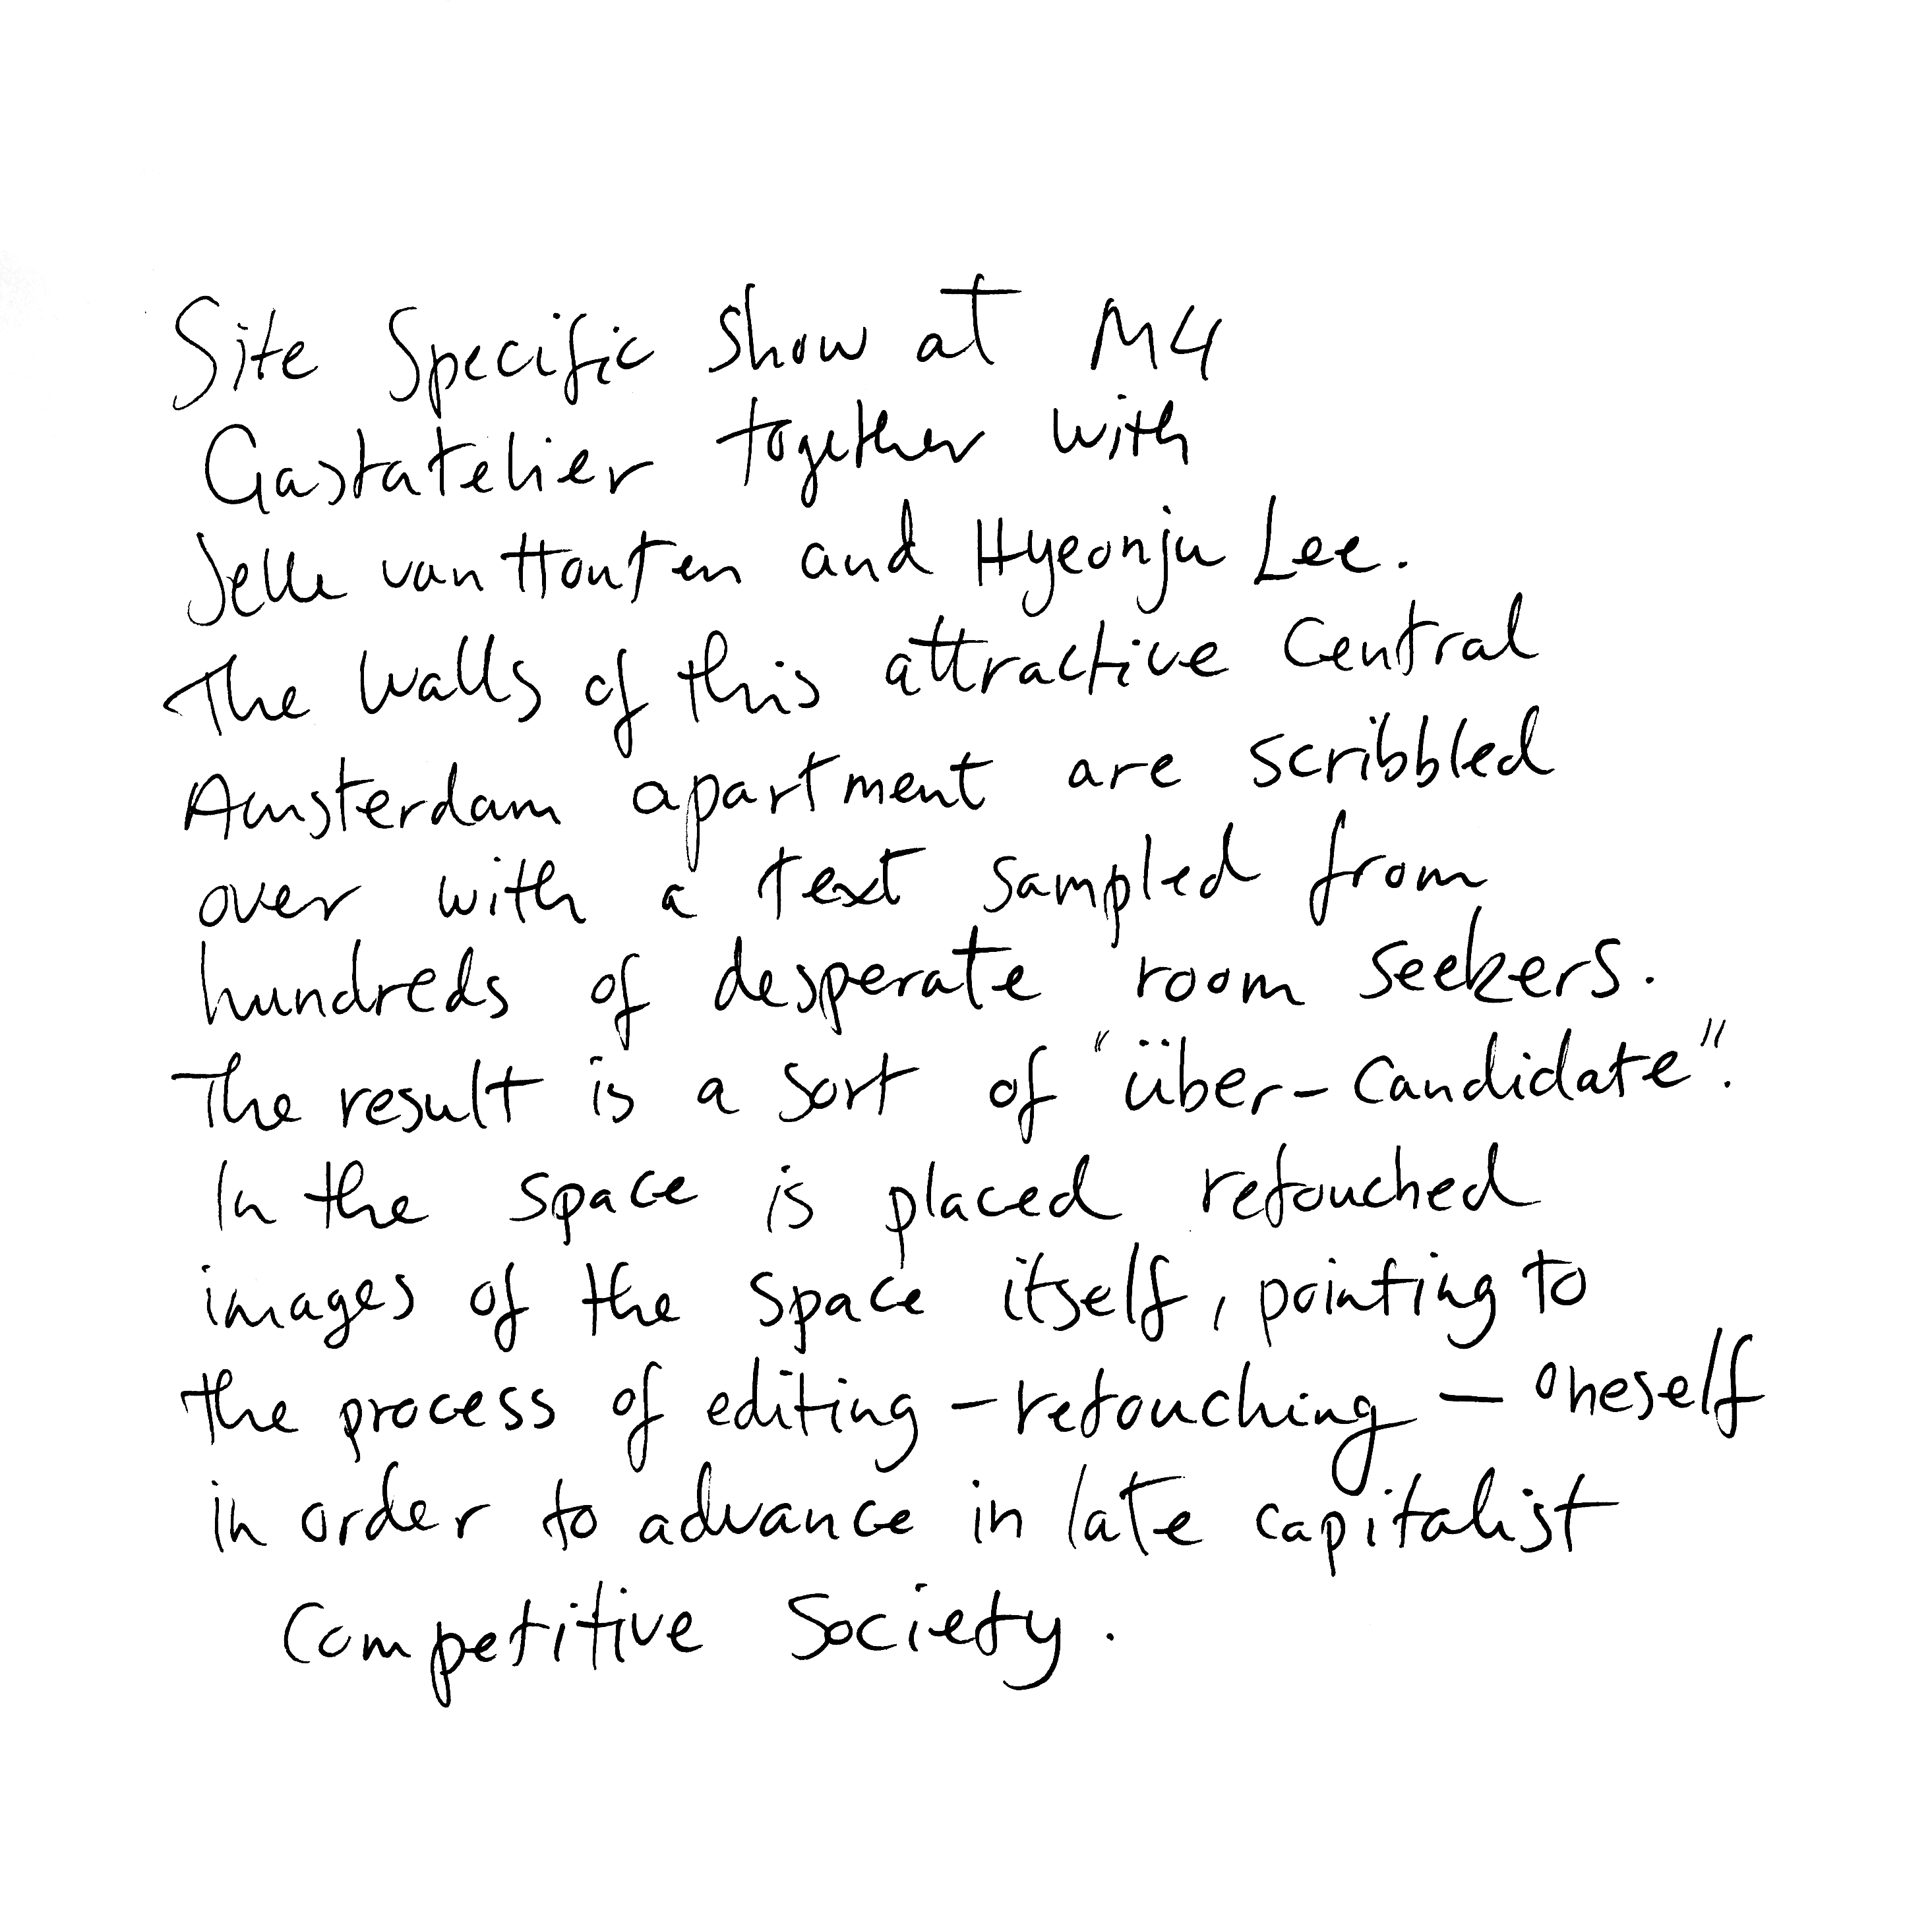 Site Specific Show at M4
Gastatelier together with
Jelle van Houten and Hyeonju Lee.
The walls of this attractive Central
Amsterdam apartment are scribbled
over with a text sampled from
hundreds of desperate room seekers.
The result is a sort of "über-candidate".
In the space is placed retouched
images of the space itself, pointing to
the process of editing - retouching - oneself
in order to advance in late capitalist
Competitive Society.